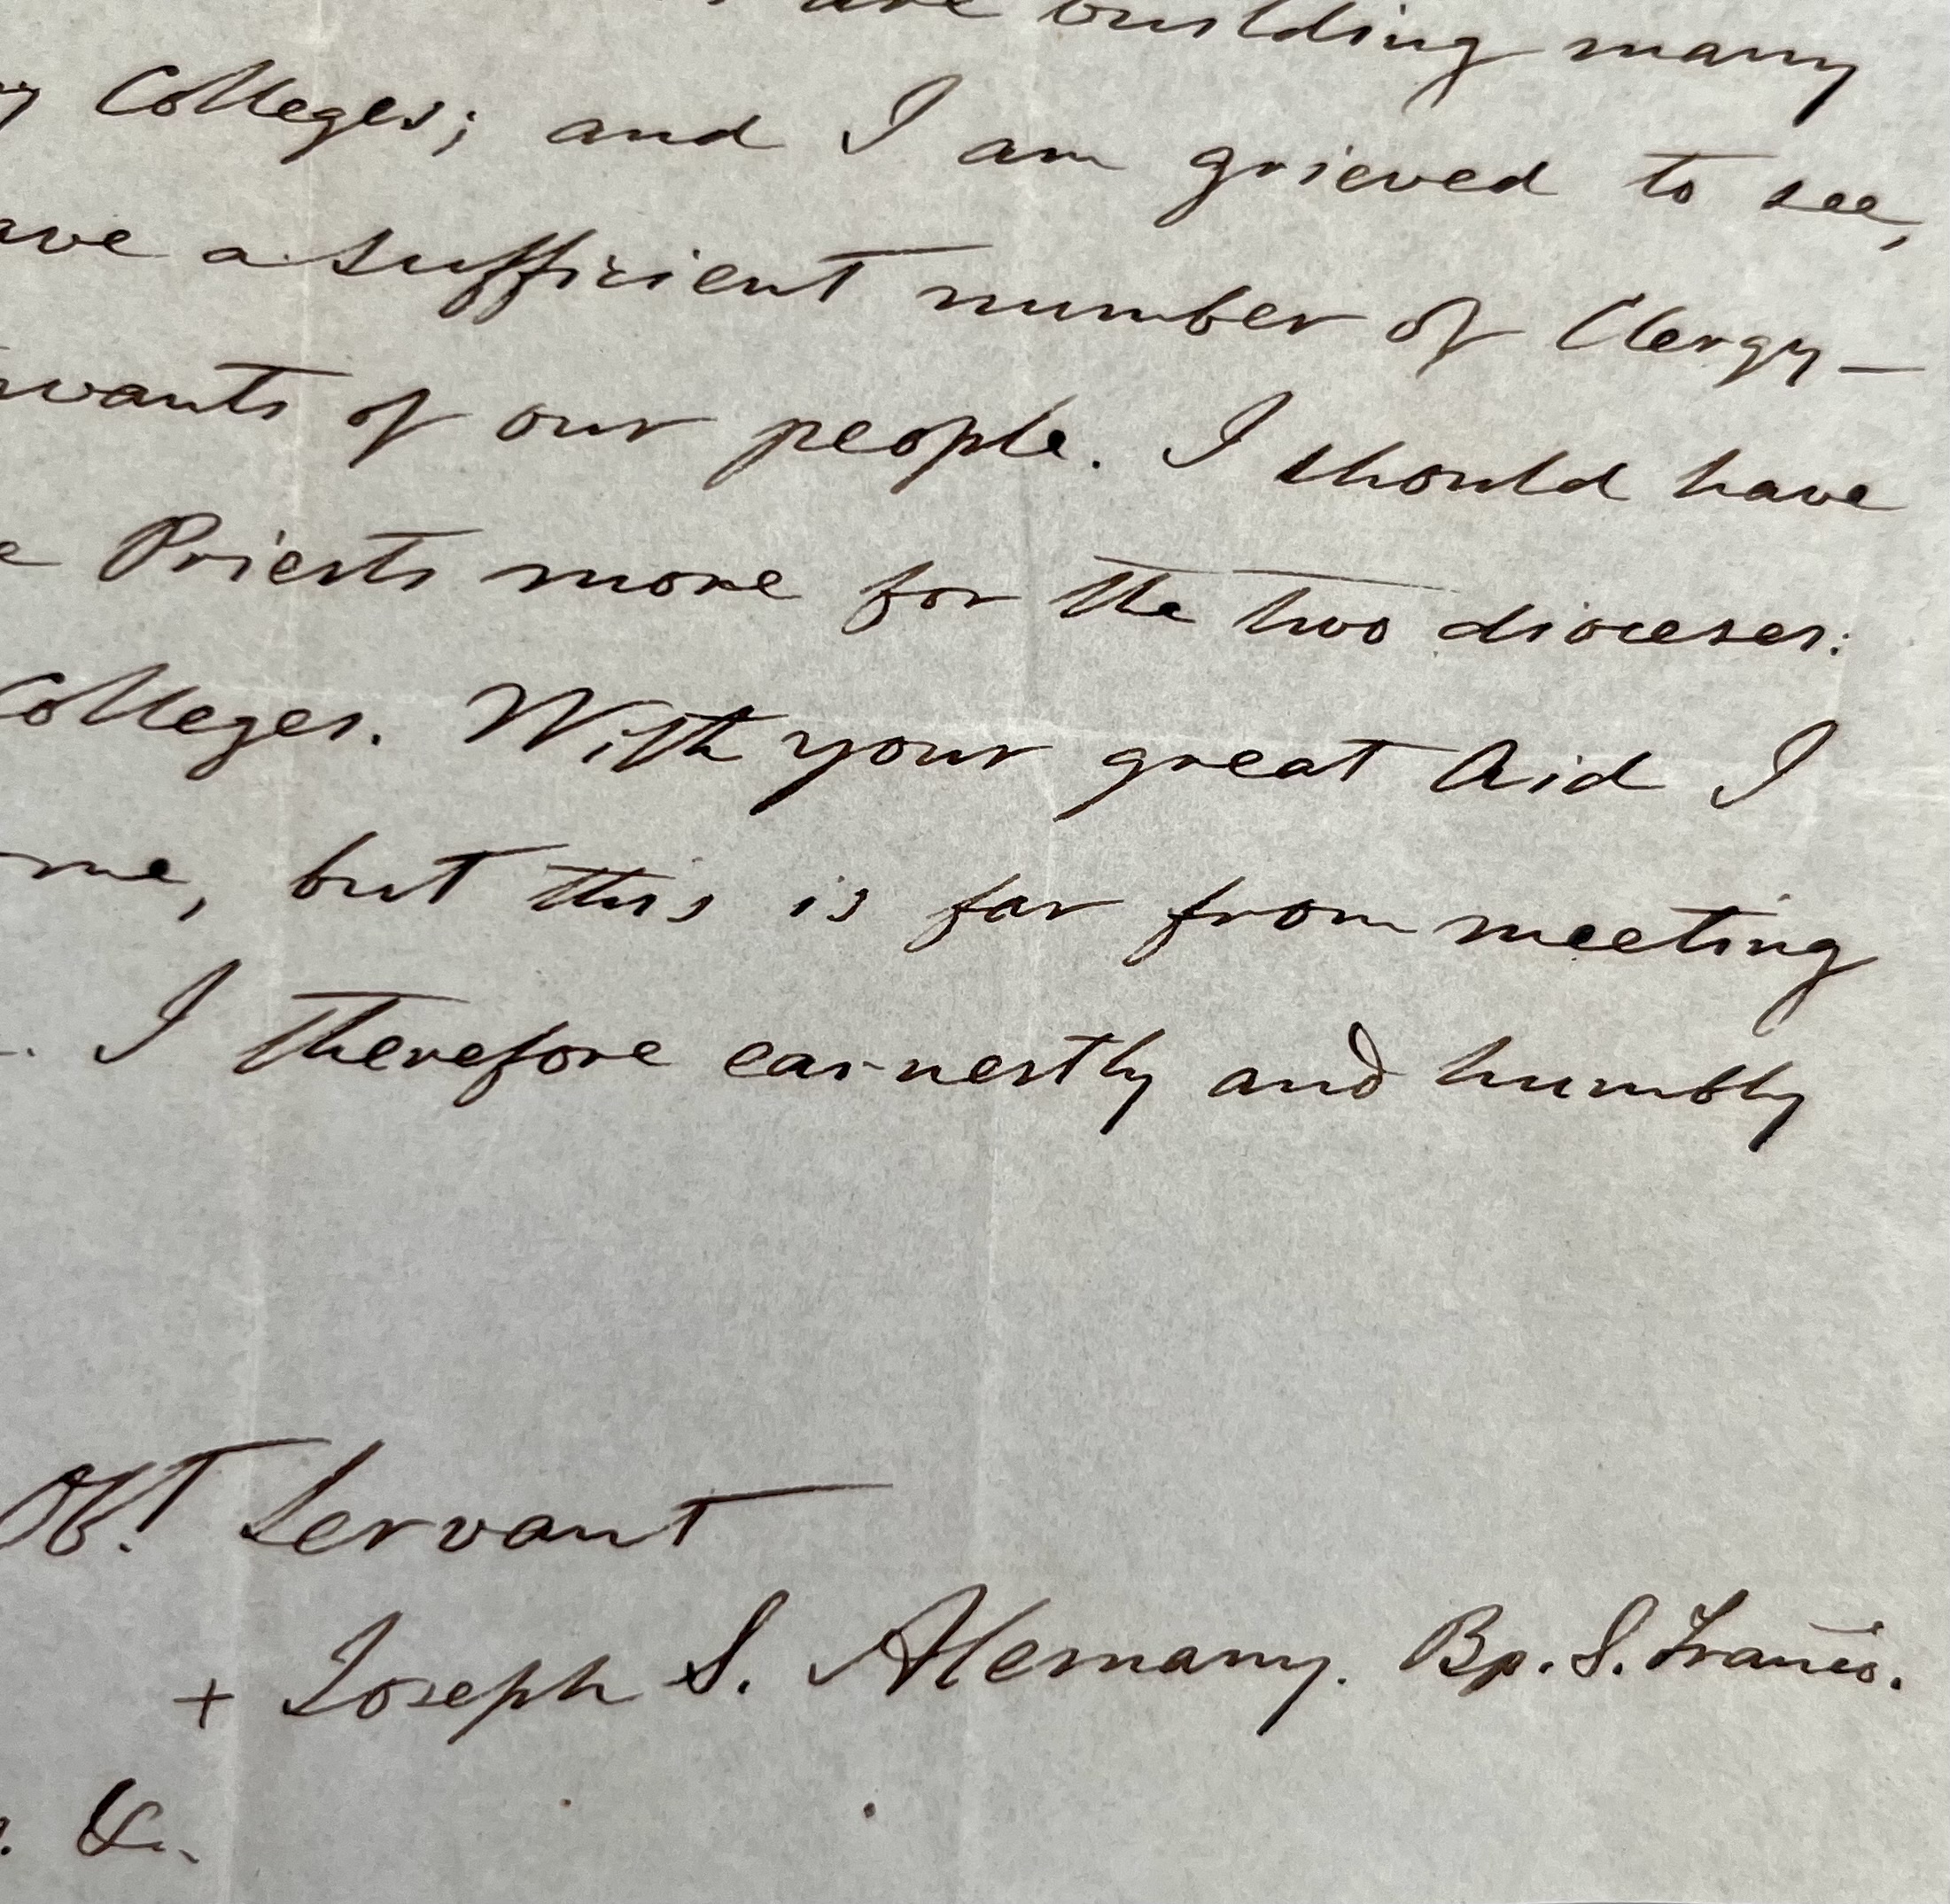 are building many
Colleges; and I am grieved to see,
ave a sufficient number of Clergy—
wants of our people. I should have
e Priests more for the two dioceses:
Colleges. With your great Aid I
me, but this is far from meeting
. I therefore earnestly and humbly
Obt. Servant
+ Joseph S. Alemany. Bp. S. Francis.
. &c.